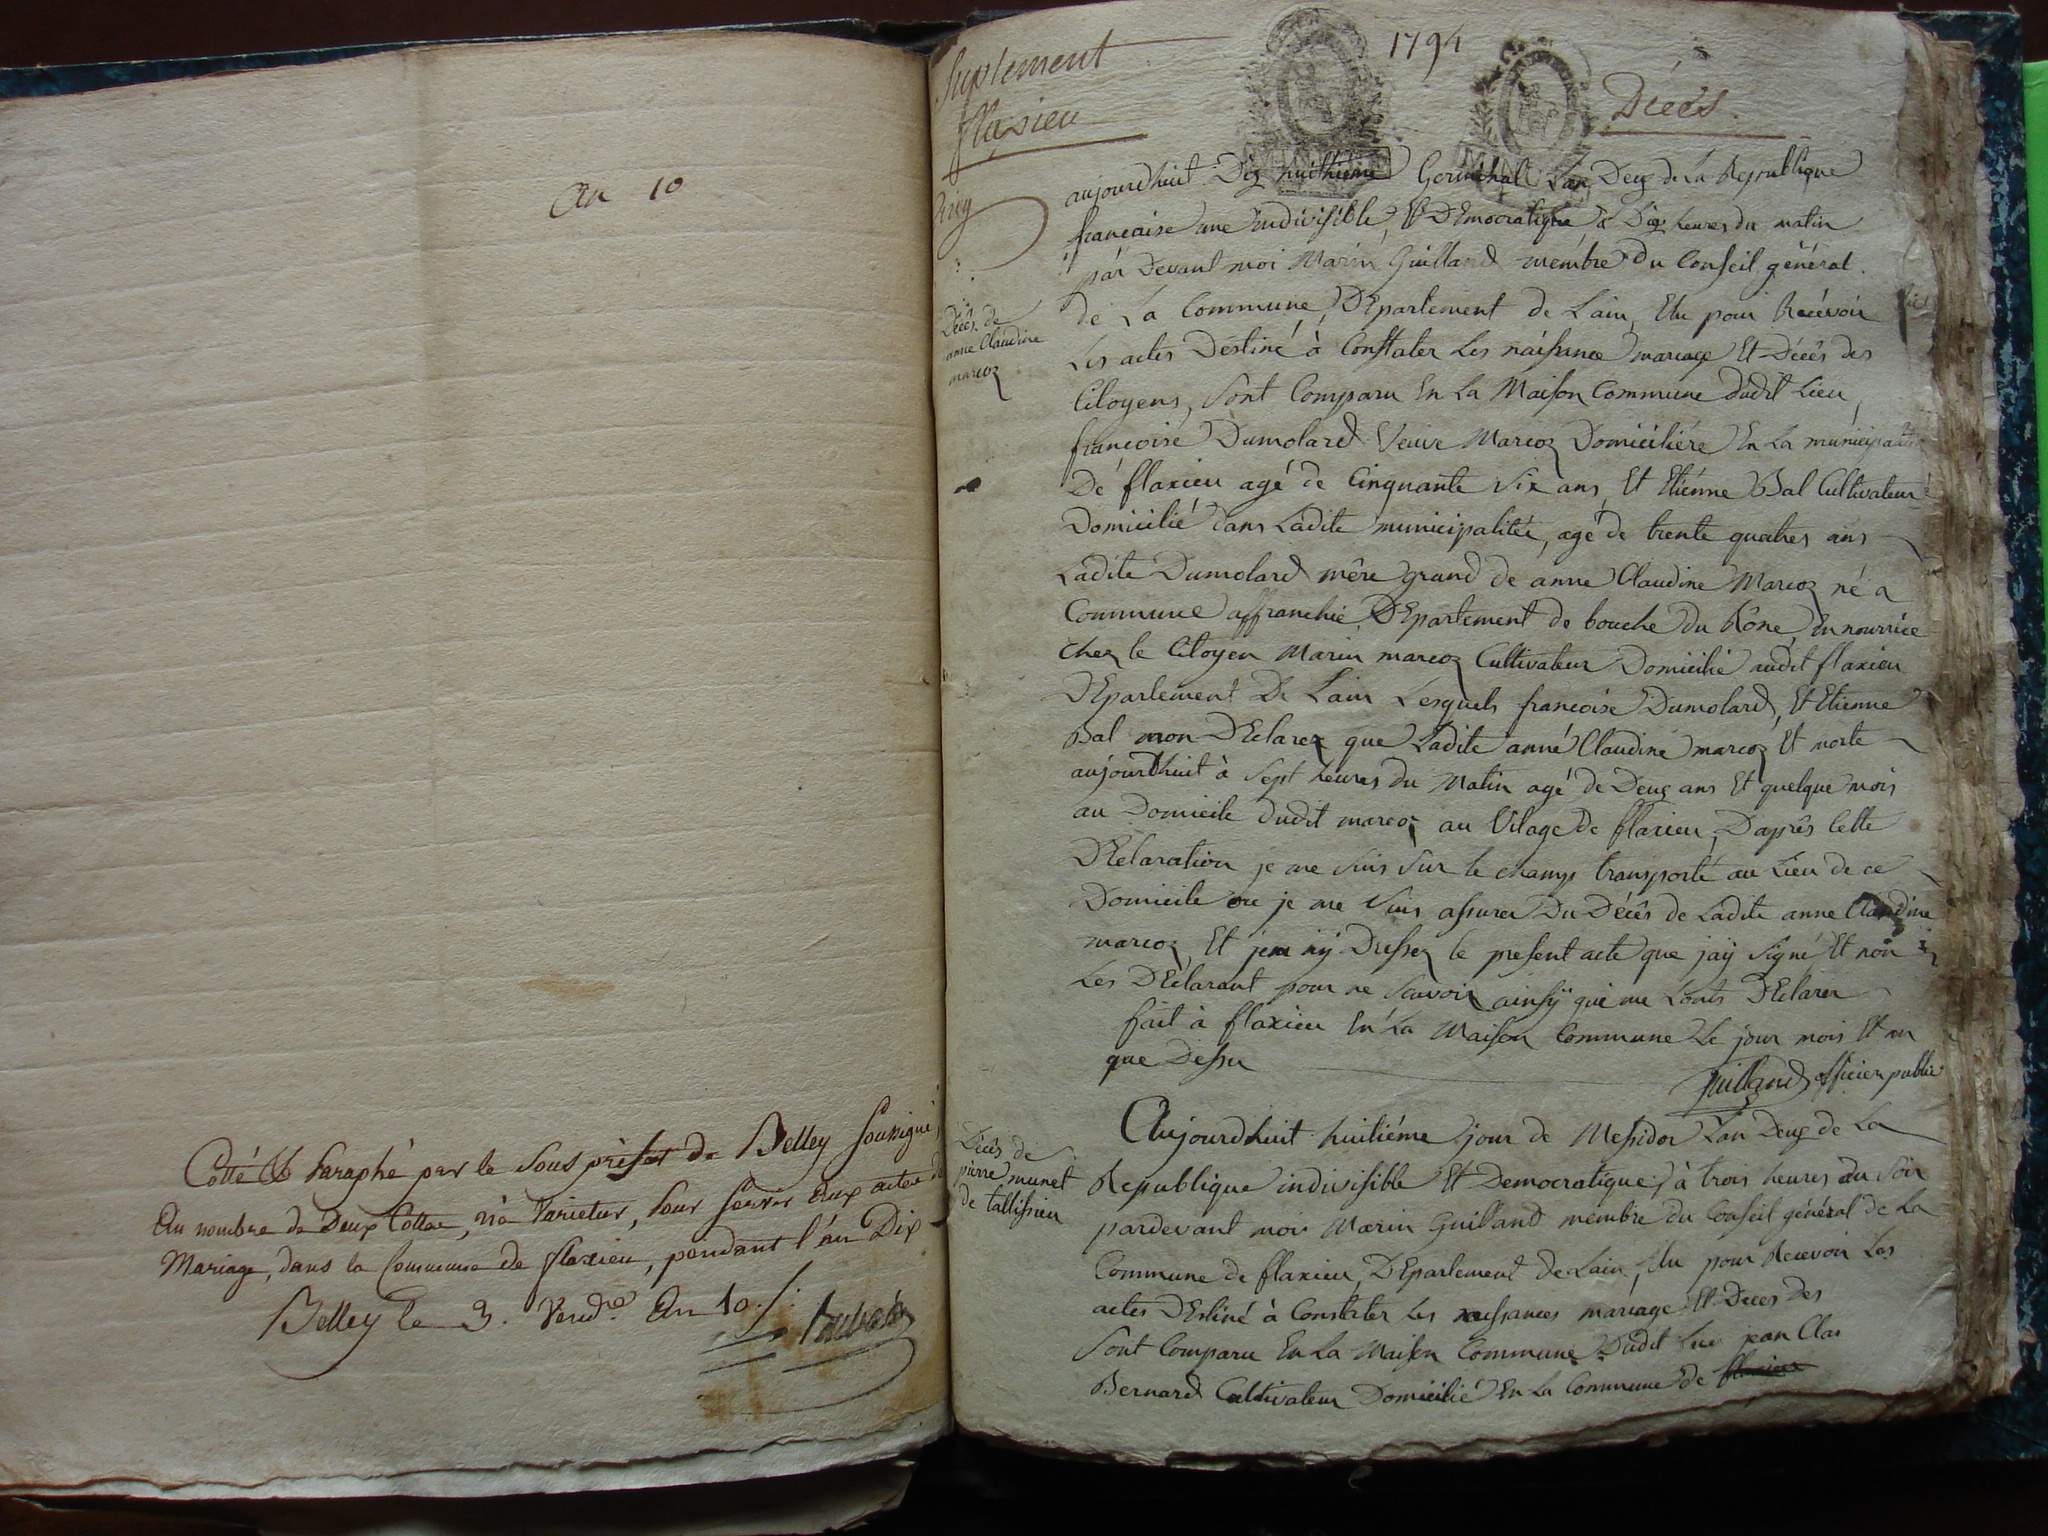 an 10
Cotté & Paraphé par le Sous préfet de Belley Soussigné,
Au nombre de Deux Cottes, Pour Servir aux actes de
Mariage, dans la Commune de flaxieu, pendant l'an Dix
Belley le 3. Vend.re An 10./.
Suplement
flaxieu
1794
Décés.
Décês de
anne Claudine
marcoz
aujourdhuit Dix huithieme Germinal Lan Deux de La Republique
francaise une indivisible, Et DEmocratique a Dix heures du matin
par Devant moi Marin Guilland membre du Conseil général
de La Commune, DEpartement de Lain, Elu pour Recevoir
Les actes Destiné à Constater Les naissance mariage Et Décês des
Citoyens, Sont Comparu En La Maison Commune dudit Lieu,
françoise Dumolard Veuve Marcoz Domiciliére En La municipalité
De flaxieu agé de Cinquante Six ans, Et Etiénne Bal Cultivateur
Domicilié dans Ladite municipalitée, agé de trente quatres ans
Ladite Dumolard mére grand de anne Claudine Marcoz né a
Commune affranchie, DEpartement de bouche du Rône, En nourrice
chez le Citoyen Marin marcoz Cultivateur Domicilié audit flaxieu
DEpartement De Lain Lesquels francoise Dumolard, Et Etienne
Bal mon DEclarez que Ladite anné Claudine marcoz Et morte
aujourdhuit à Sept heures du Matin agé de Deux ans Et quelque mois
au Domicile dudit marcoz au Vilage de flaxieu, Daprês Cette
DEclaration je me Suis Sur le champ transporté au Lieu de ce
Domicile ou je me Suis assurer Du Décês de Ladite anne Claudine
marcoz, Et jen ay Dressez le present acte que jaÿ Signé Et non
Les DEclarant pour ne Scavoir ainsÿ qui me Lonts DEclarer
fait à flaxieu En La Maison Commune Le jour mois Et an
que Dessu
Guilland officier public
Décês de
pierre munet
de tallissieu
Aujourdhuit huitiéme jour de Messidor Lan Deux de La
Republique indivisible Et Democratique, à trois heures du Soir
pardevant moy Marin Guilland membre du Conseil général de La
Commune de flaxieu, DEpartement de Lain, Elu pour Recevoir Les
actes DEstiné à Constater Les naissances mariage Et Deces des
Sont Comparu En La Maison Commune Dudit Lieu jean Clau
Bernard Cultivateur Domicilié En La Commune de flaxieu